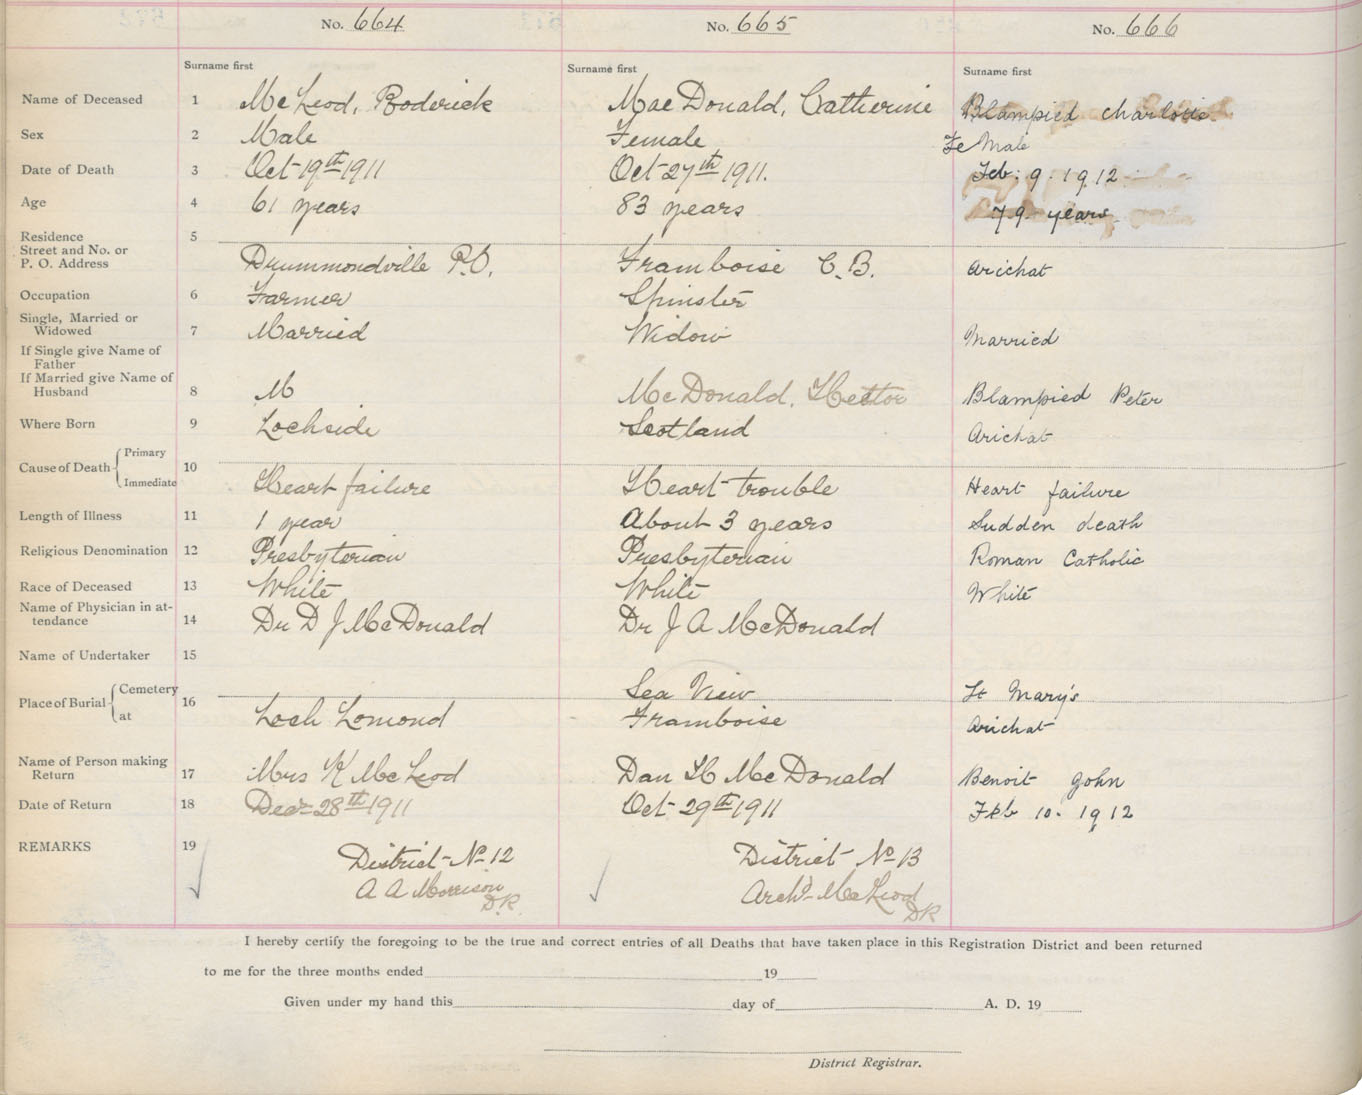 No. 664 No. 665 No. 666
Surname first Surname first Surname first
Name of Deceased 1 McLeod, Roderick MacDonald, Catherine Blampied Charlotte
Sex 2 Male Female Female
Date of Death 3 Oct 19th 1911 Oct 27th 1911. Feb. 9. 1912
Age 4 61 years 83 years 79 years
Residence 5
Street and No. or
P. O. Address Drummondville P.O. Framboise C.B. Arichat
Occupation 6 Farmer Spinster
Single, Married or
Widowed 7 Married Widow Married
If Single give Name of
Father
If Married give Name of
Husband 8 M McDonald, Hector Blampied Peter
Where Born 9 Lochside Scotland Arichat
Cause of Death Primary 10
Immediate Heart failure Heart trouble Heart failure
Length of Illness 11 1 year About 3 years Sudden death
Religious Denomination 12 Presbyterian Presbyterian Roman Catholic
Race of Deceased 13 White White White
Name of Physician in at-
tendance 14 Dr D J McDonald Dr J A McDonald
Name of Undertaker 15
Place of Burial Cemetery 16 Sea View St Mary's
at Loch Lomond Framboise Arichat
Name of Person making
Return 17 Mrs K McLeod Dan H McDonald Benoit John
Date of Return 18 Dec 28th 1911 Oct 29th 1911 Feb 10. 1912
REMARKS 19 District No 12 District No 13
A A Morrison Archd McLeod
D.R. DR
I hereby certify the foregoing to be the true and correct entries of all Deaths that have taken place in this Registration District and been returned
to me for the three months ended 19
Given under my hand this day of A. D. 19
District Registrar.